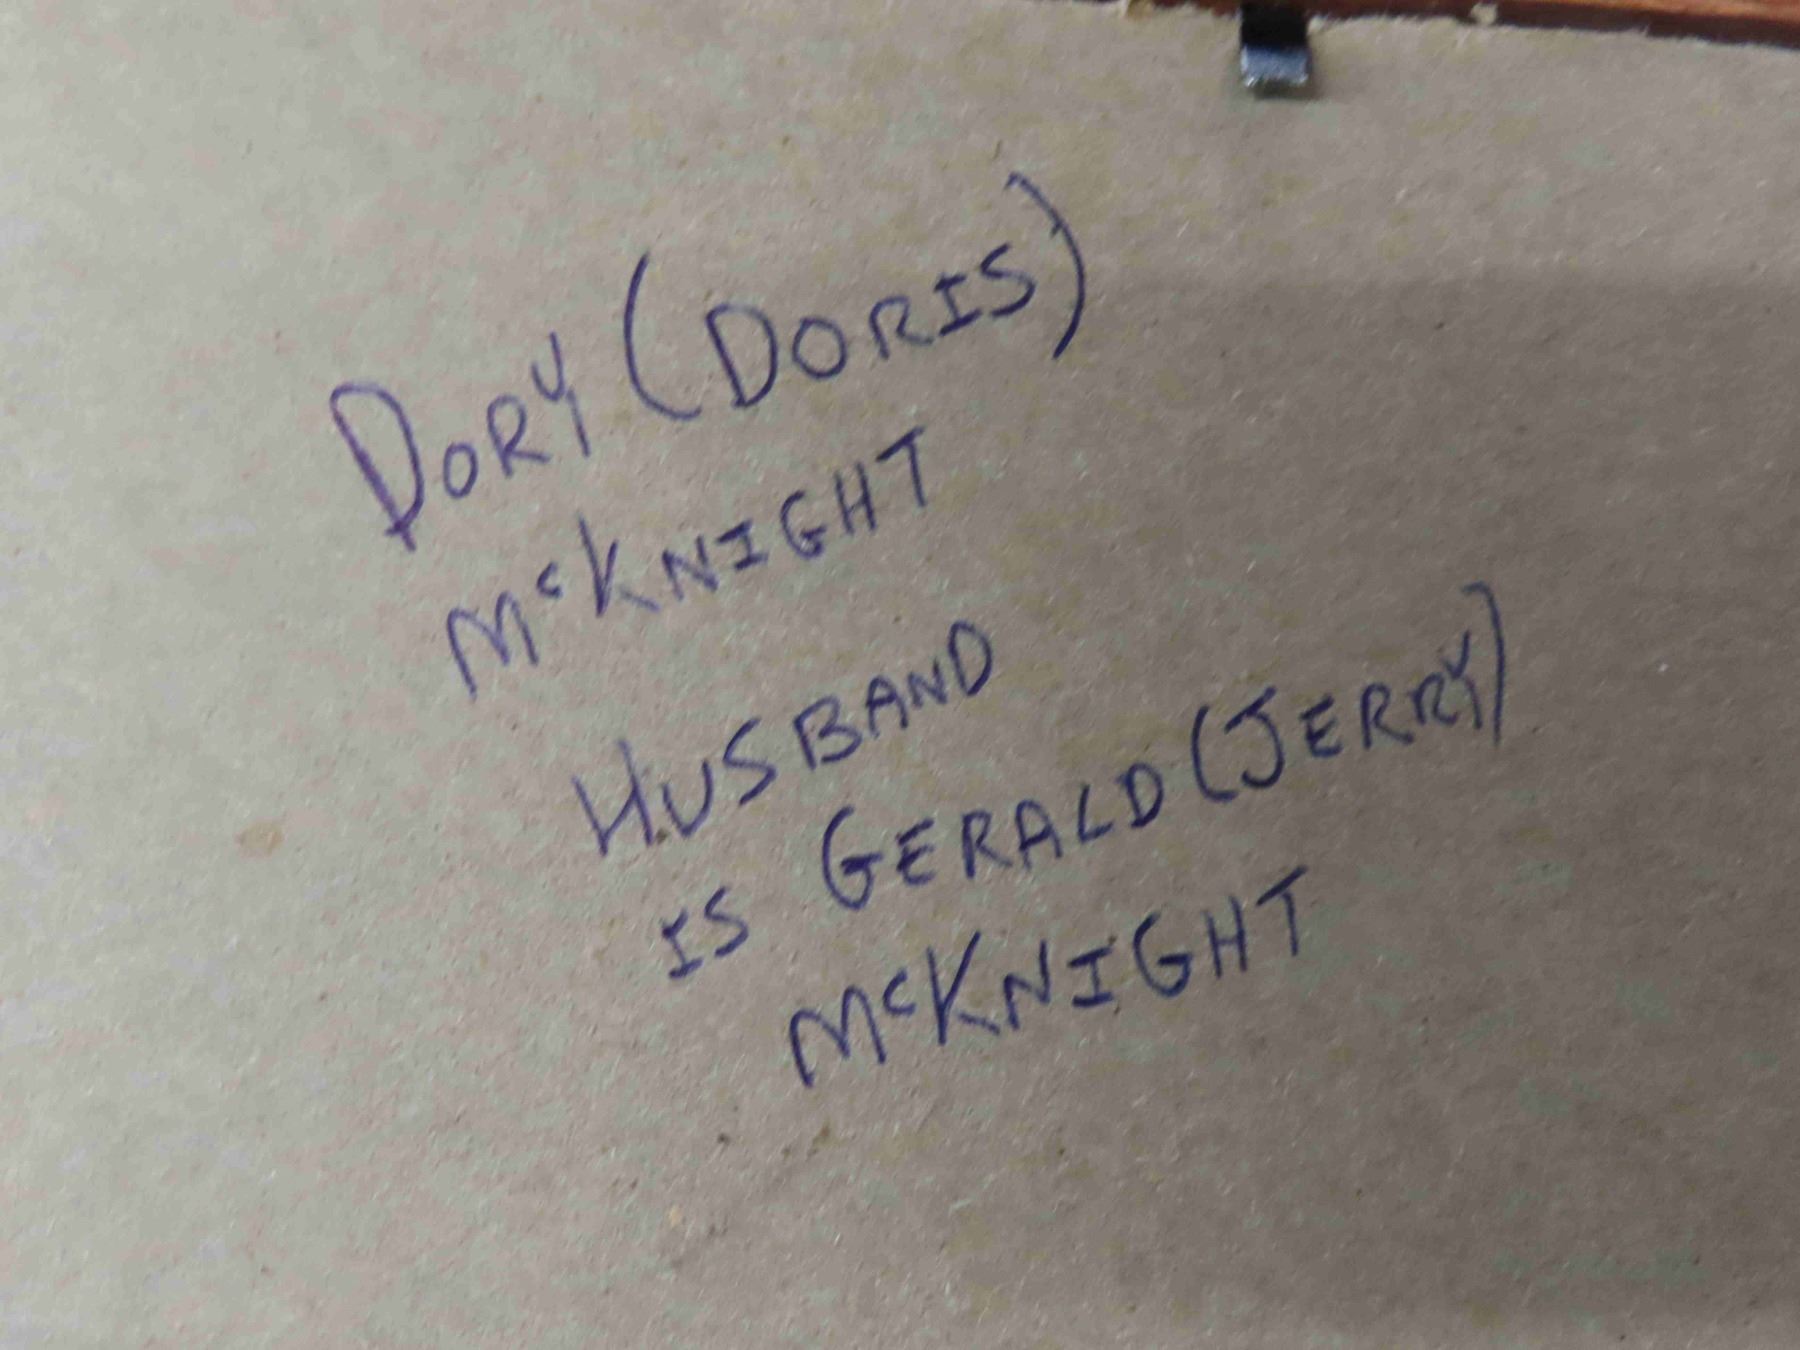 DORY (DORIS)
McKNIGHT
HUSBAND
IS GERALD (JERRY)
McKNIGHT